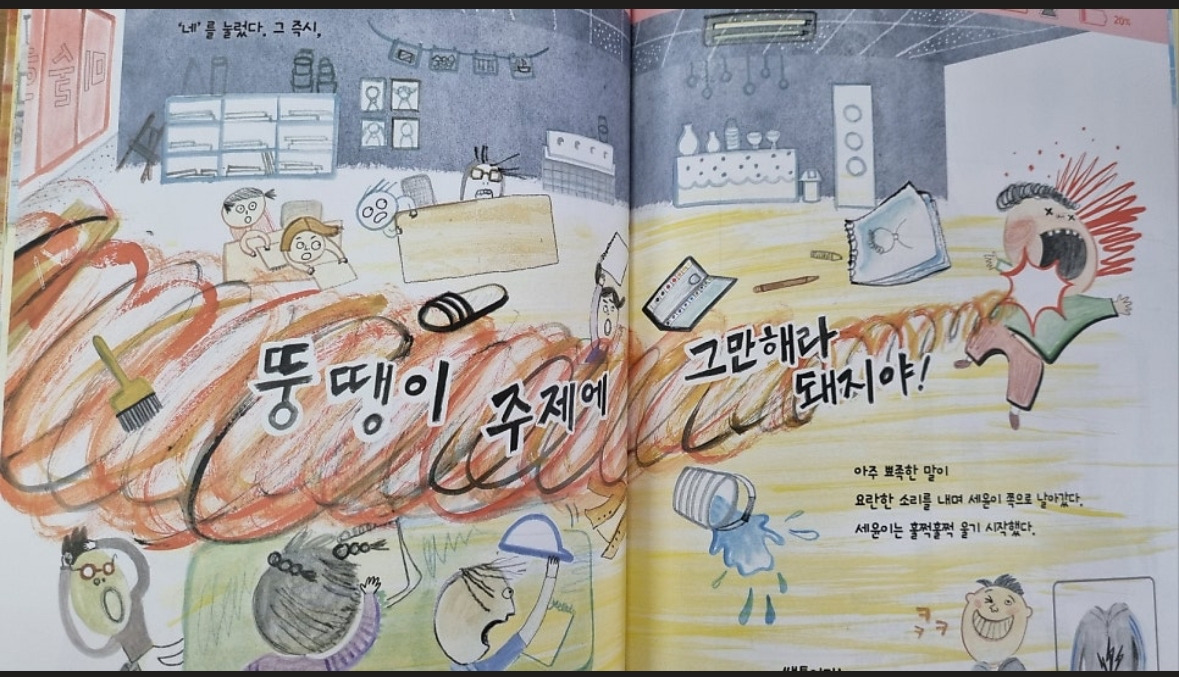 '네'를 눌렀다. 그 즉시,
20%
미술용
뚱땡이 주제에
그만해라
돼지야!
아주 뾰족한 말이
요란한 소리를 내며 세윤이 쪽으로 날아갔다.
세윤이는 훌쩍훌쩍 울기 시작했다.
ㅋ
ㅋㅋ